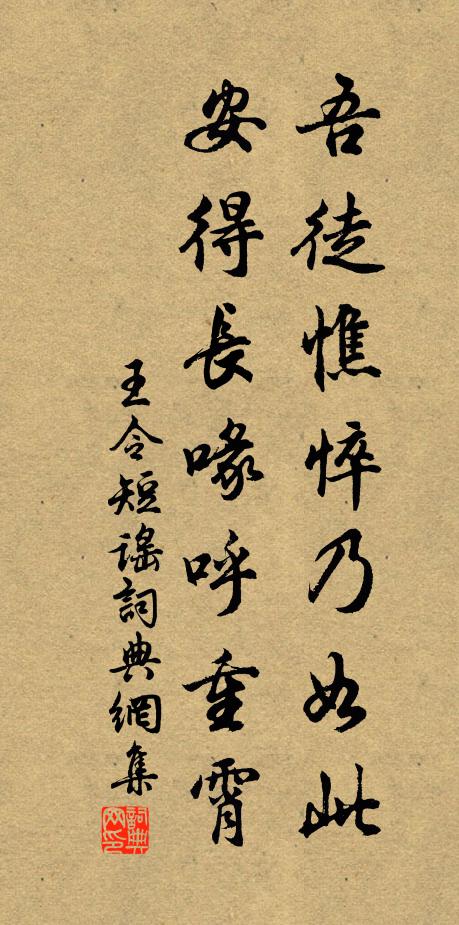 吾徒憔悴乃如此
安得長喙呼重霄
王令短謠詞典網集
詞典網印